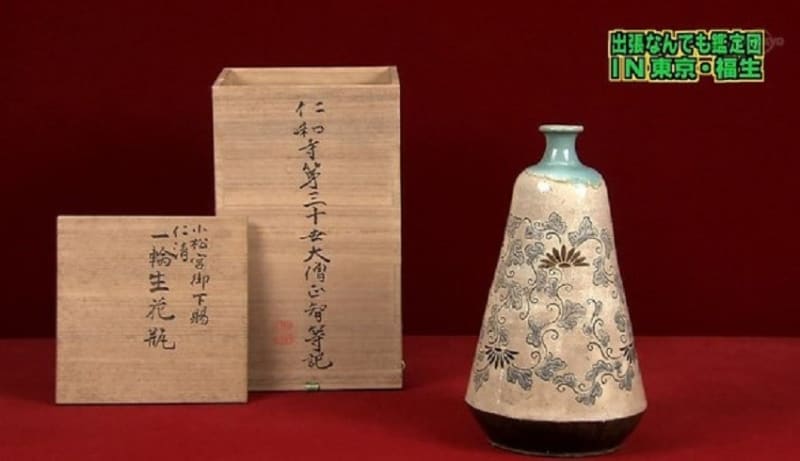 出張なんでも鑑定団
IN東京・福生
仁和寺第三十世大僧正智等記
小松宮御下賜
仁清
一輪生花瓶